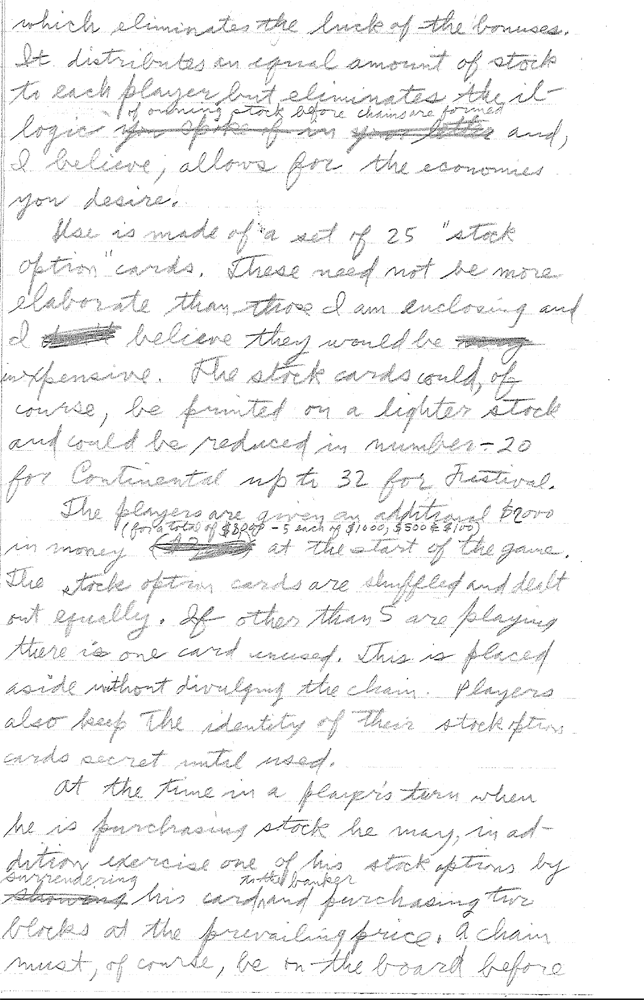 which eliminates the luck of the bonuses.
It distributes an equal amount of stock
to each player but eliminates the il-
of owning stock before chains are formed
logic you spoke of in your letter and,
I believe, allows for the economies
you desire.
Use is made of a set of 25 "stock
option" cards. These need not be more
elaborate than those I am enclosing and
I believe they would be
inexpensive. The stock cards could, of
course, be printed on a lighter stock
and could be reduced in number - 20
for Continental up to 32 for Festival.
The players are given an additional $2000
(for a total of $8000 - 5 each of $1000, $500 & $100)
in money at the start of the game.
The stock option cards are shuffled and dealt
out equally. If other than 5 are playing
there is one card unused. This is placed
aside without divulging the chain. Players
also keep the identity of their stock option
cards secret until used.
At the time in a player's turn when
he is purchasing stock he may, in ad-
dition exercise one of his stock options by
surrendering to the banker
showing his card, and purchasing two
blocks at the prevailing price. A chain
must, of course, be on the board before